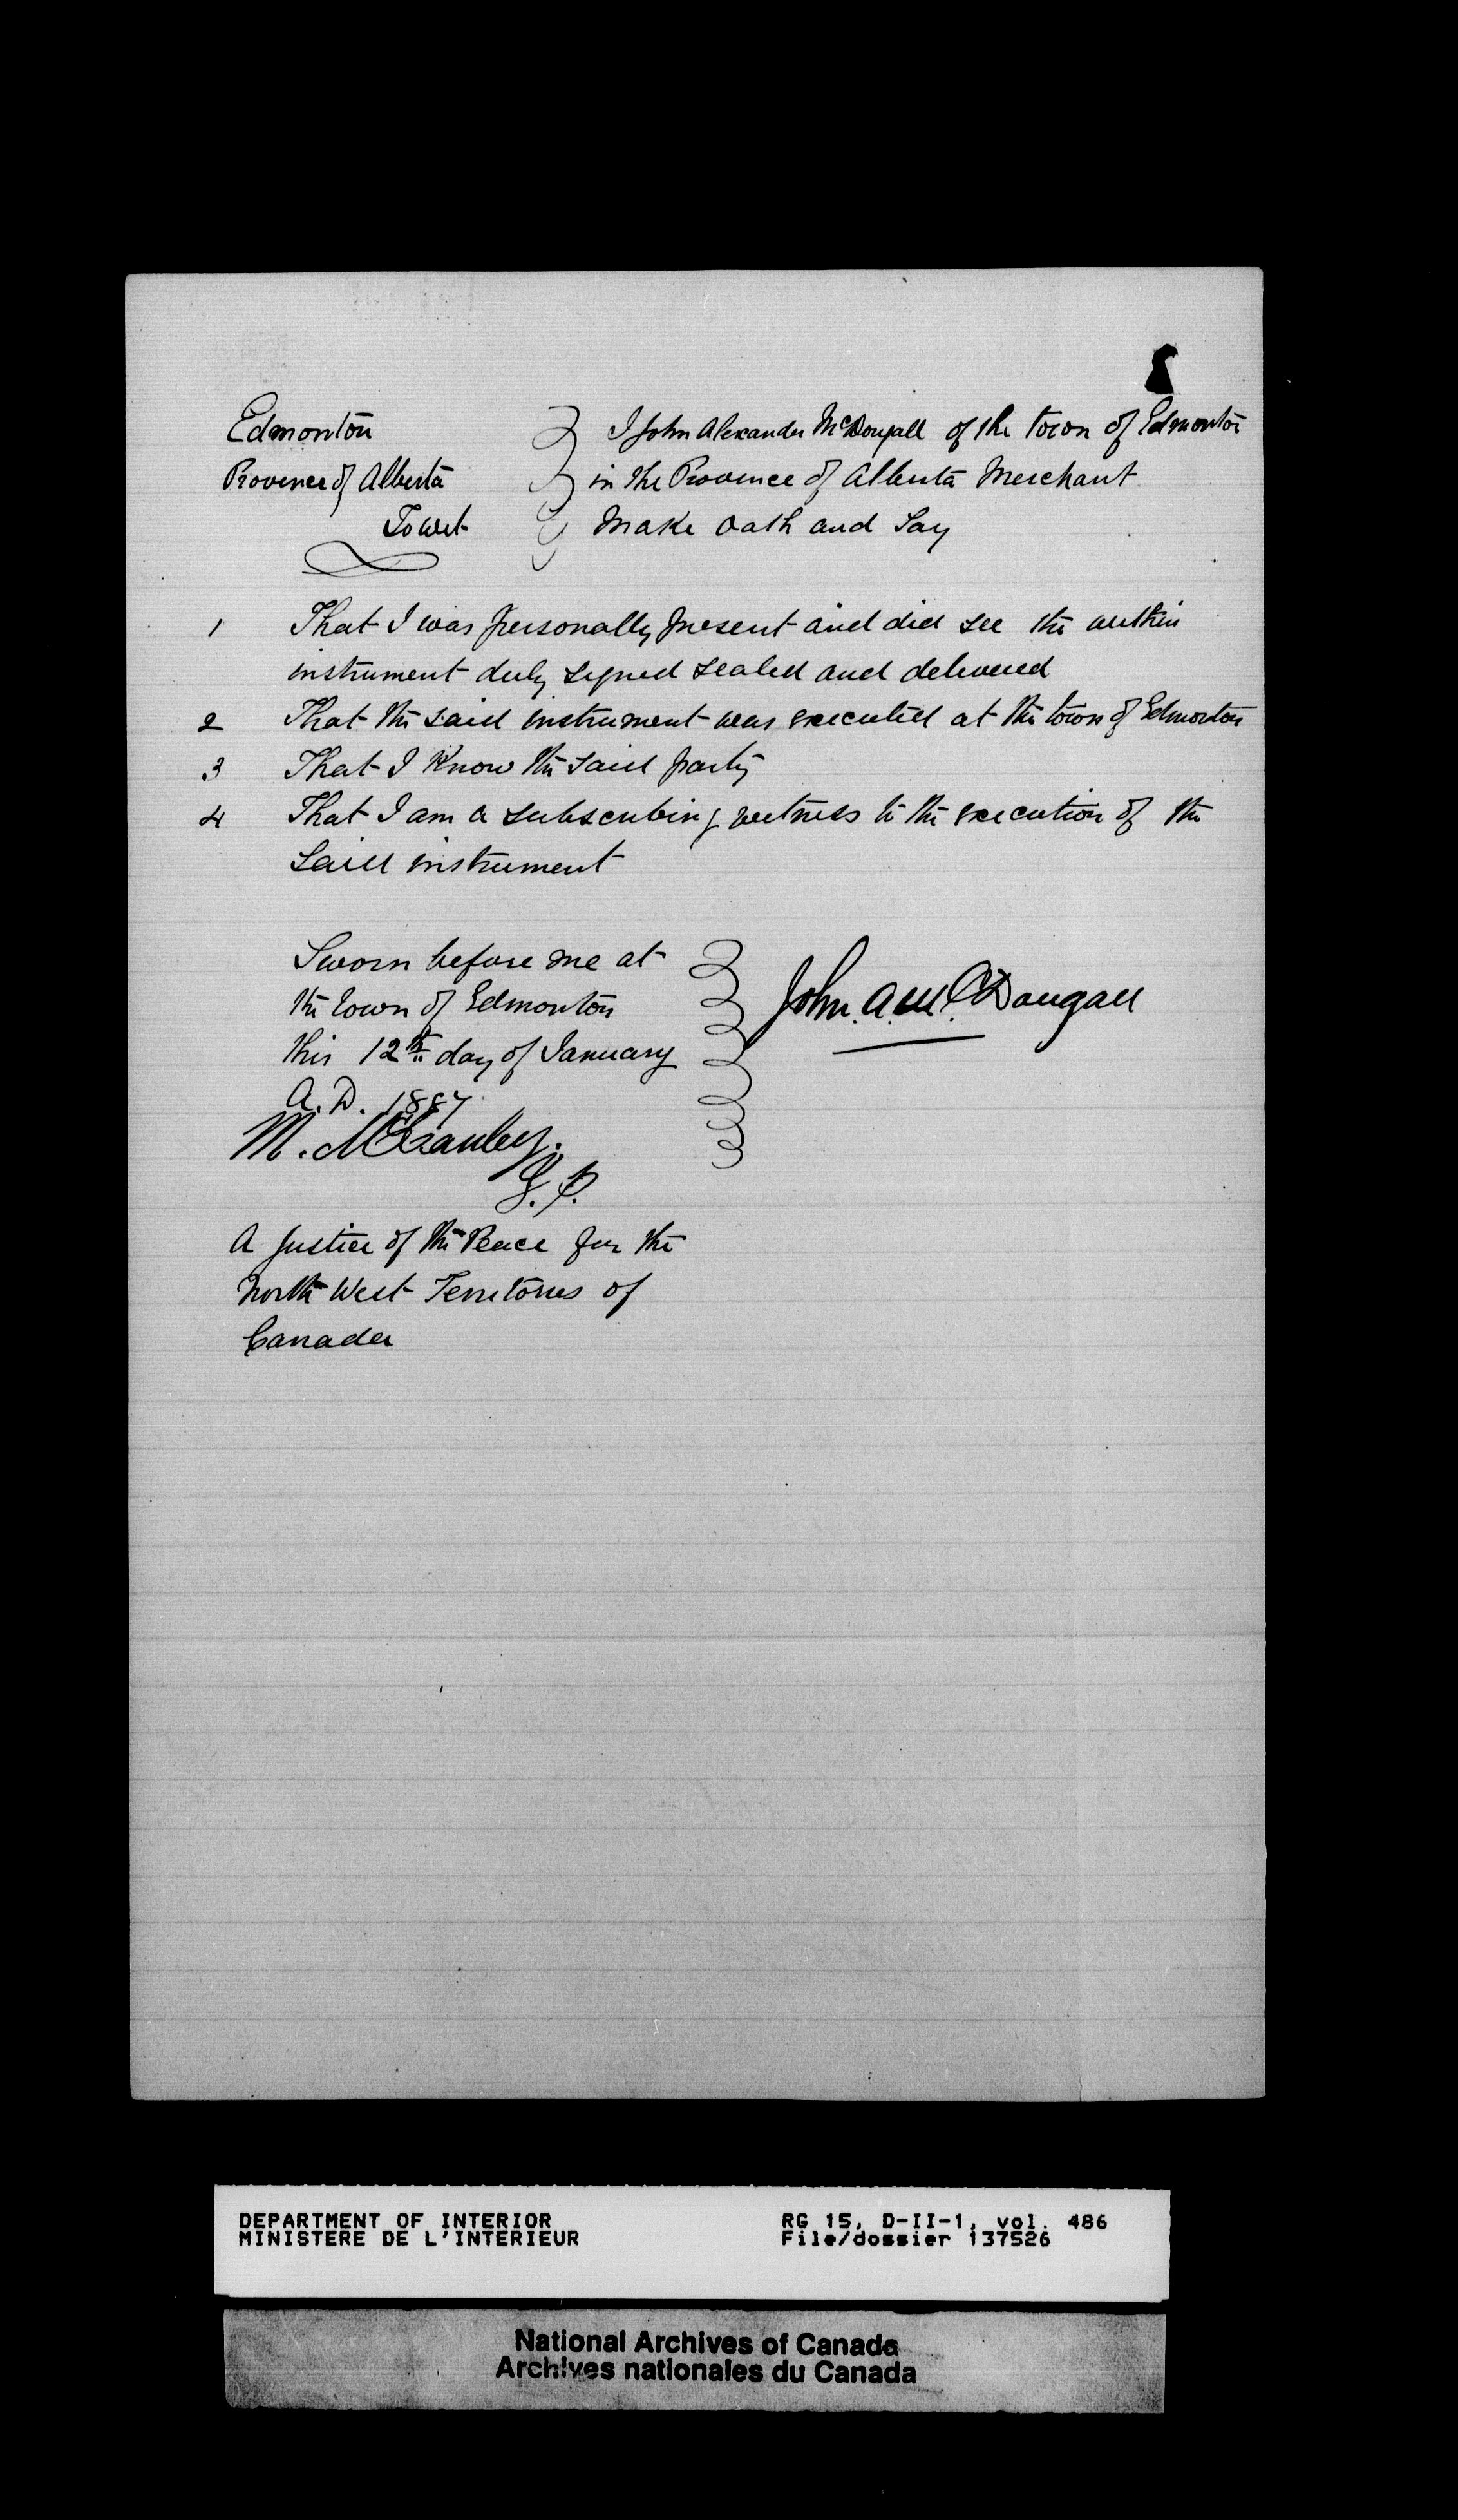 Edmonton
Province of Alberta
To wit
I John Alexander McDougall of the town of Edmonton
in the Province of Alberta Merchant
Make Oath and Say
1 That I was personally present and did see the within
instrument duly signed sealed and delivered
2 That the said instrument was executed at the town of Edmonton
3 That I Know the said party
4 That I am a subscribing witness to the execution of the
said instrument
Sworn before me at
the town of Edmonton
this 12th day of January
A.D. 1887
John. A. McDougall
M. McCauley.
J.P.
A Justice of the Peace for the
North West Territories of
Canada
DEPARTMENT OF INTERIOR
MINISTERE DE L'INTERIEUR
RG 15, D-II-1, vol. 486
File/dossier 137526
National Archives of Canada
Archives nationales du Canada